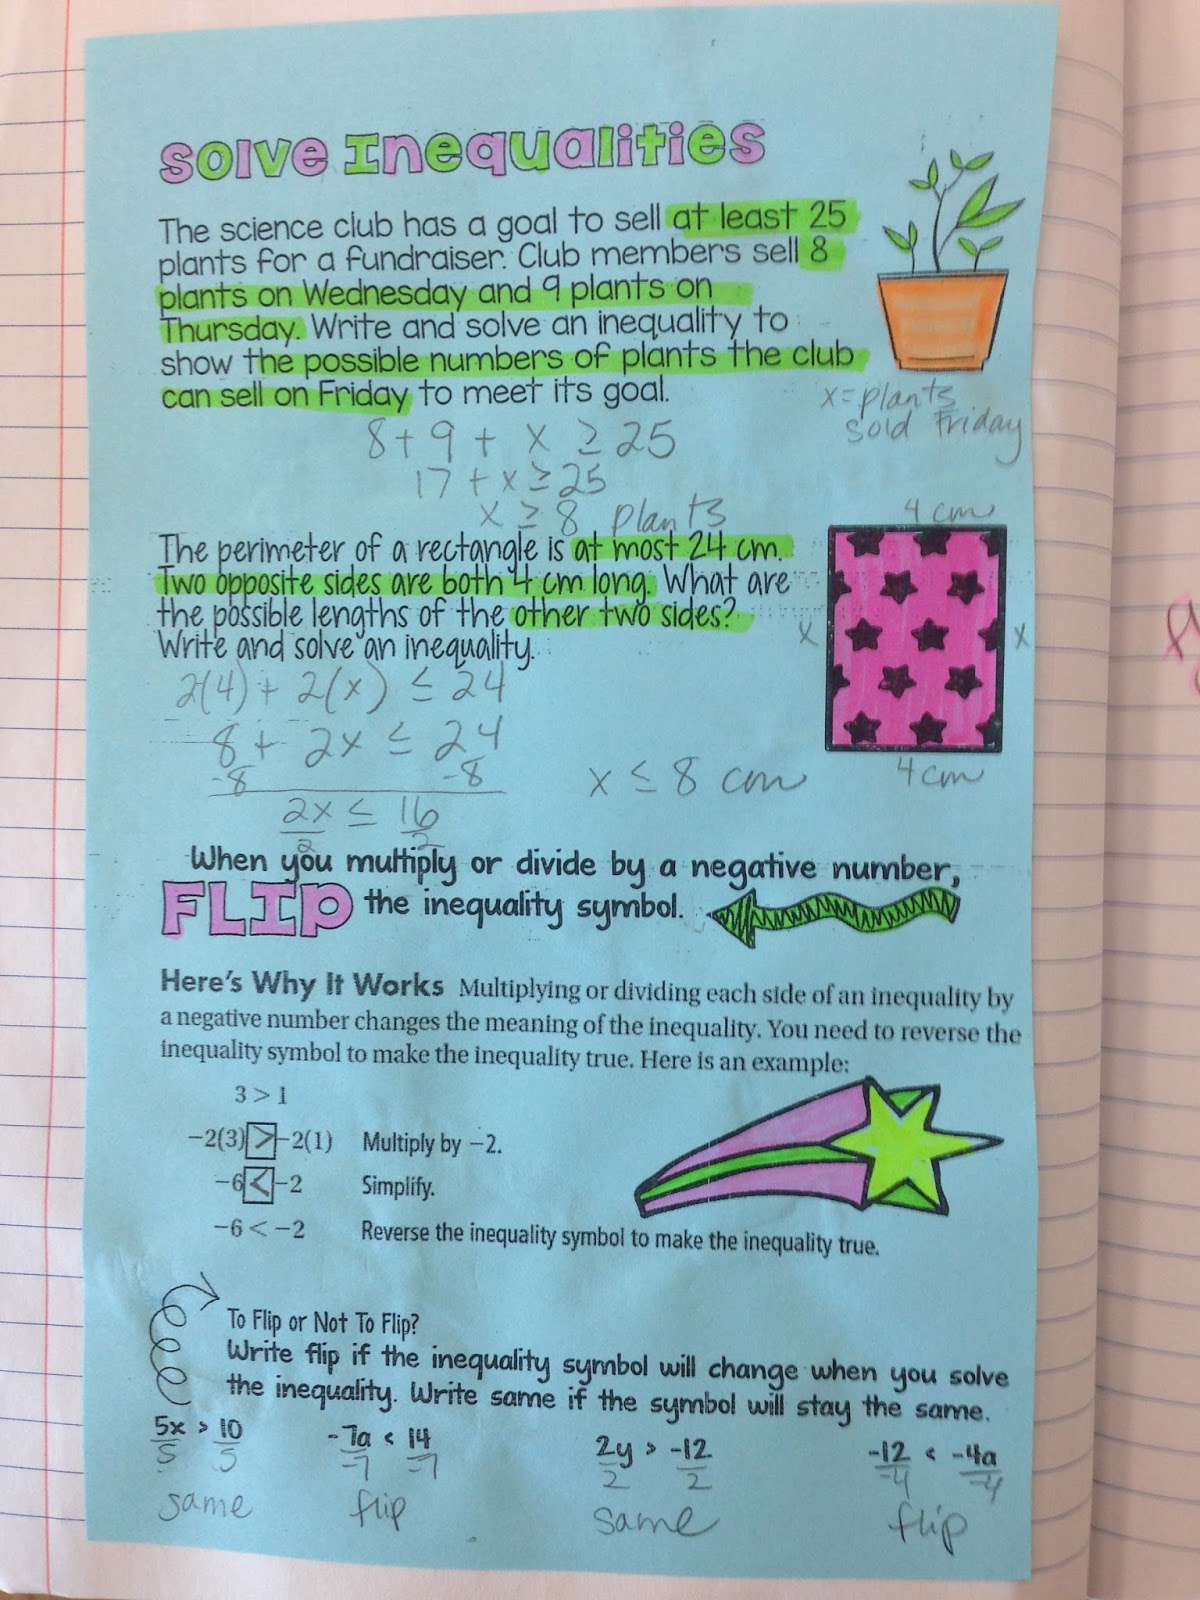 Solve Inequalities
The science club has a goal to sell at least 25
plants for a fundraiser. Club members sell 8
plants on Wednesday and 9 plants on
Thursday. Write and solve an inequality to
show the possible numbers of plants the club
can sell on Friday to meet its goal.
x = plants
sold Friday
8 + 9 + x ≥ 25
17 + x ≥ 25
x ≥ 8 plants
4 cm
The perimeter of a rectangle is at most 24 cm.
Two opposite sides are both 4 cm long. What are
the possible lengths of the other two sides?
Write and solve an inequality.
x
x
4 cm
2(4) + 2(x) ≤ 24
8 + 2x ≤ 24
-8 -8
2x ≤ 16
2 2
x ≤ 8 cm
When you multiply or divide by a negative number,
FLIP the inequality symbol.
Here's Why It Works Multiplying or dividing each side of an inequality by
a negative number changes the meaning of the inequality. You need to reverse the
inequality symbol to make the inequality true. Here is an example:
3 > 1
−2(3) > −2(1) Multiply by −2.
−6 < −2 Simplify.
−6 < −2 Reverse the inequality symbol to make the inequality true.
To Flip or Not To Flip?
Write flip if the inequality symbol will change when you solve
the inequality. Write same if the symbol will stay the same.
5x > 10 -7a < 14 2y > -12 -12 < -4a
5 5 -7 -7 2 2 -4 -4
same flip same flip